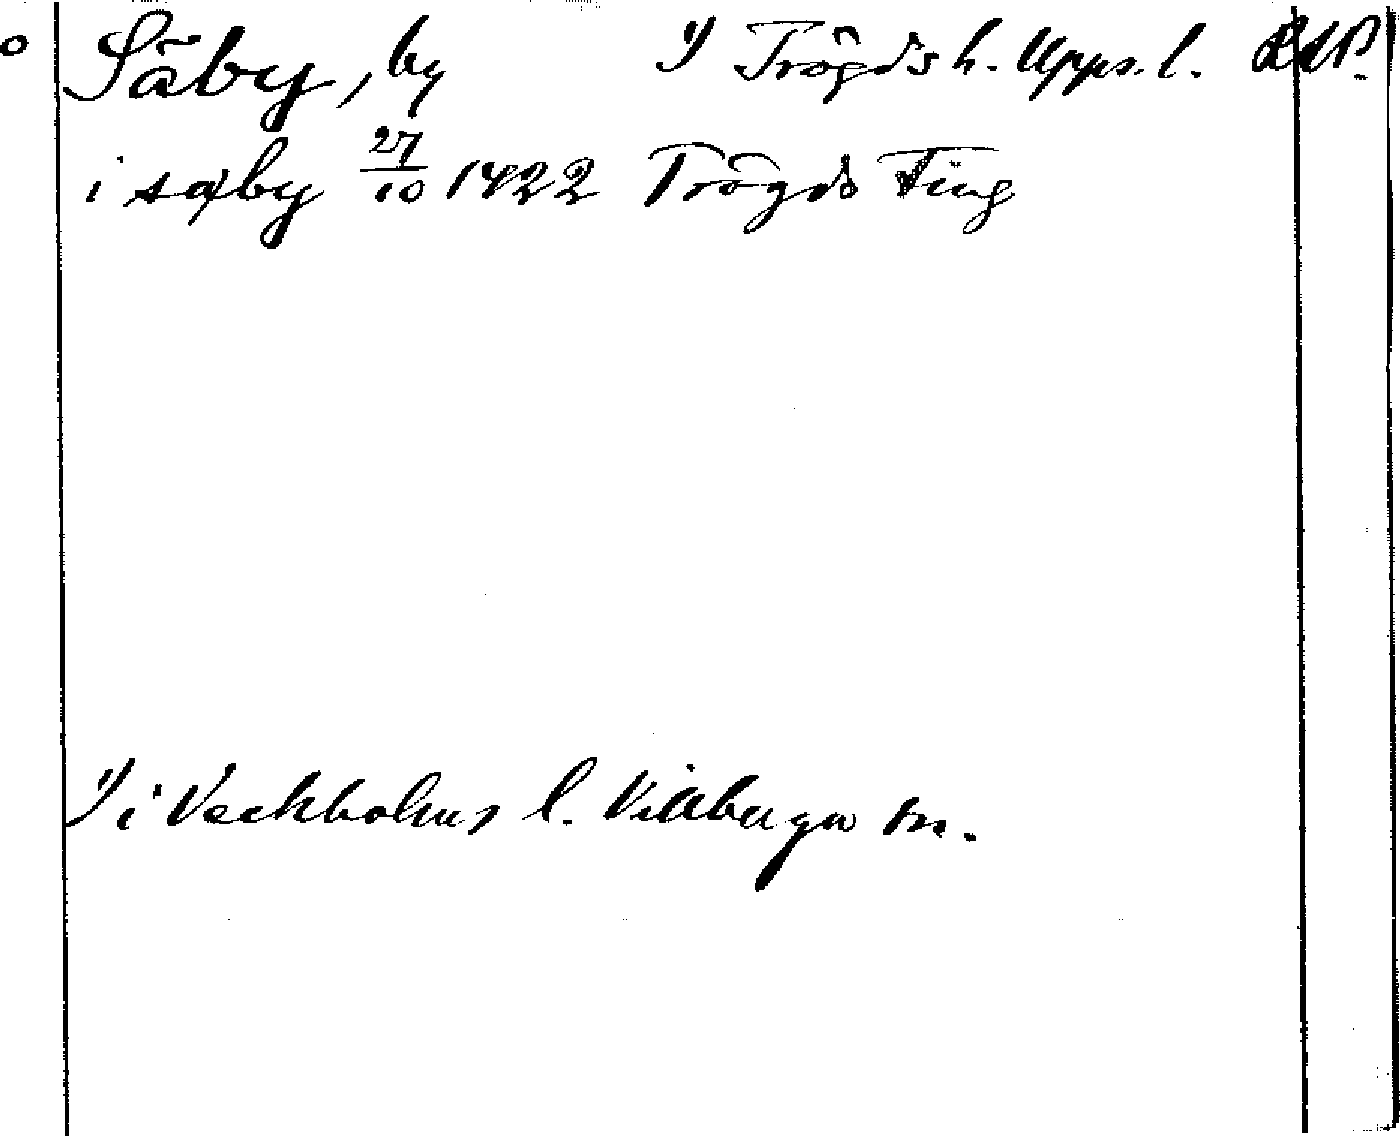 Säby, by 1) Trögds h. Upps. l. RAP.
i sæby 27/10 1422 Trögds Ting
1) i Veckholms l. Villberga sn.